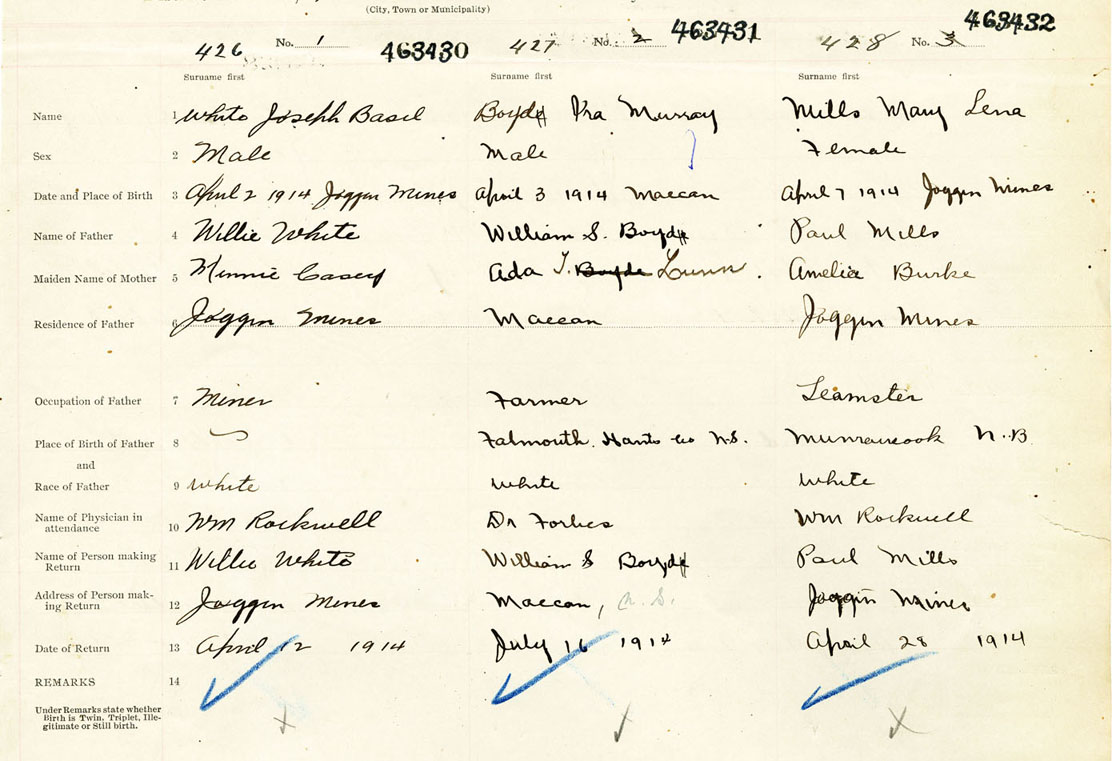 (City, Town or Municipality)
426 No. 1 463430 427 No. 2 463431 428 No. 3 463432
Surname first Surname first Surname first
Name 1 White Joseph Basil Boyd Ira Murray Mills Mary Lena
Sex 2 Male Male Female
Date and Place of Birth 3 April 2 1914 Joggin Mines April 3 1914 Maccan April 7 1914 Joggin Mines
Name of Father 4 Willie White William S. Boyd Paul Mills
Maiden Name of Mother 5 Minnie Casey Ada T. Boyde Lunn. Amelia Burke
Residence of Father 6 Joggin Mines Maccan Joggin Mines
Occupation of Father 7 Miner Farmer Teamster
Place of Birth of Father 8 Falmouth. Hants Co N.S. N.B.
and
Race of Father 9 White White White
Name of Physician in
attendance 10 Wm Rockwell Dr Forbes Wm Rockwell
Name of Person making
Return 11 Willie White William S Boyd Paul Mills
Address of Person mak-
ing Return 12 Joggin Mines Maccan, N.S. Joggin Mines
Date of Return 13 April 12 1914 July 16 1914 April 28 1914
REMARKS 14
Under Remarks state whether
Birth is Twin, Triplet, Ille-
gitimate or Still birth.